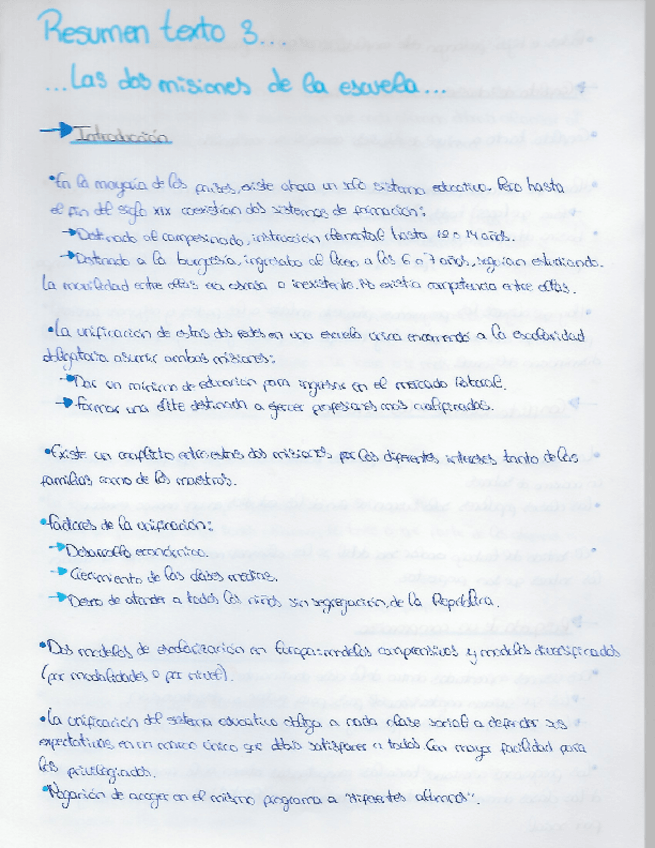 Resumen texto 3...
...Las dos misiones de la escuela...
→ Introducción
•En la mayoría de los países, existe ahora un solo sistema educativo. Pero hasta
el fin del siglo XIX coexistían dos sistemas de formación:
→Destinado al campesinado, instrucción elemental hasta 12 o 14 años.
→Destinado a la burguesía, ingresaba al liceo a los 6 o 7 años, seguían estudiando.
La movilidad entre ellas era escasa o inexistente. No existía competencia entre ellas.
•La unificación de estas dos redes en una escuela única encomendó a la escolaridad
obligatoria asumir ambas misiones:
→Dar un mínimo de educación para ingresar en el mercado laboral.
→Formar una élite destinada a ejercer profesiones más cualificadas.
•Existe un conflicto entre estas dos misiones por los diferentes intereses tanto de las
familias como de los maestros.
•Factores de la unificación:
→Desarrollo económico.
→Crecimiento de las clases medias.
→Deseo de atender a todos los niños sin segregación, de la República.
•Dos modelos de escolarización en Europa: modelos comprensivos y modelos diversificados
(por modalidades o por nivel).
•La unificación del sistema educativo obliga a cada clase social a defender sus
expectativas en un marco único que debía satisfacer a todos. Con mayor facilidad para
los privilegiados.
•Negación de acoger en el mismo programa a "diferentes alumnos".